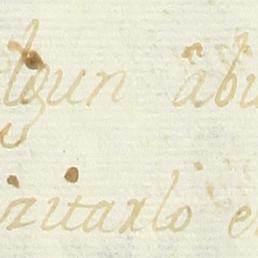 lgun âbu
izitarlo e